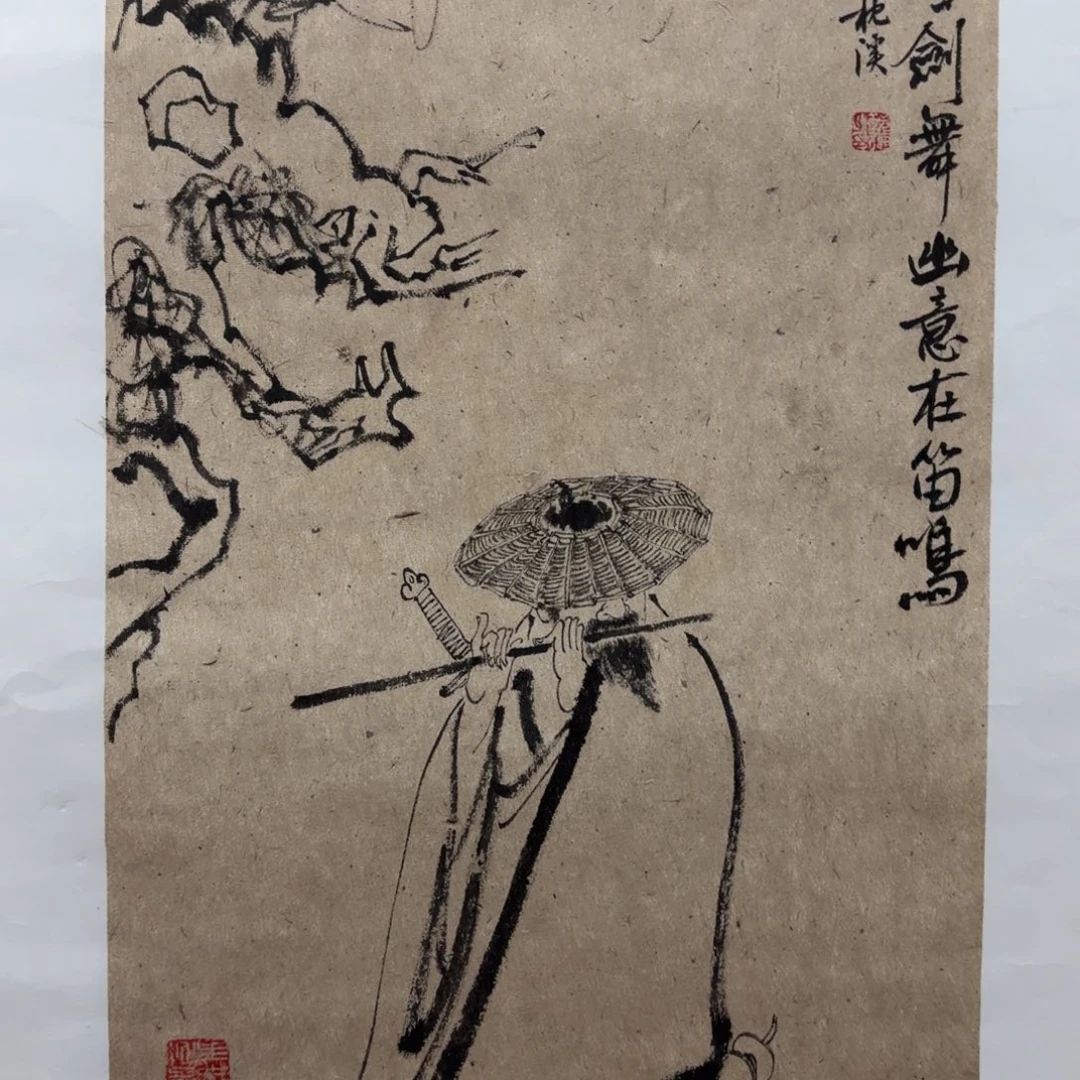 劍舞幽意在笛鳴
枕溪